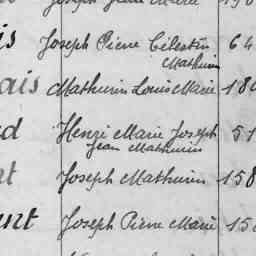 Joseph Jean Marie
is Joseph Pierre Célestin 64
Mathurin
ais Mathurin Louis Marie 180
d Henri Marie Joseph 51
Jean Mathurin
t Joseph Mathurin 158
unt Joseph Pierre Marie 150